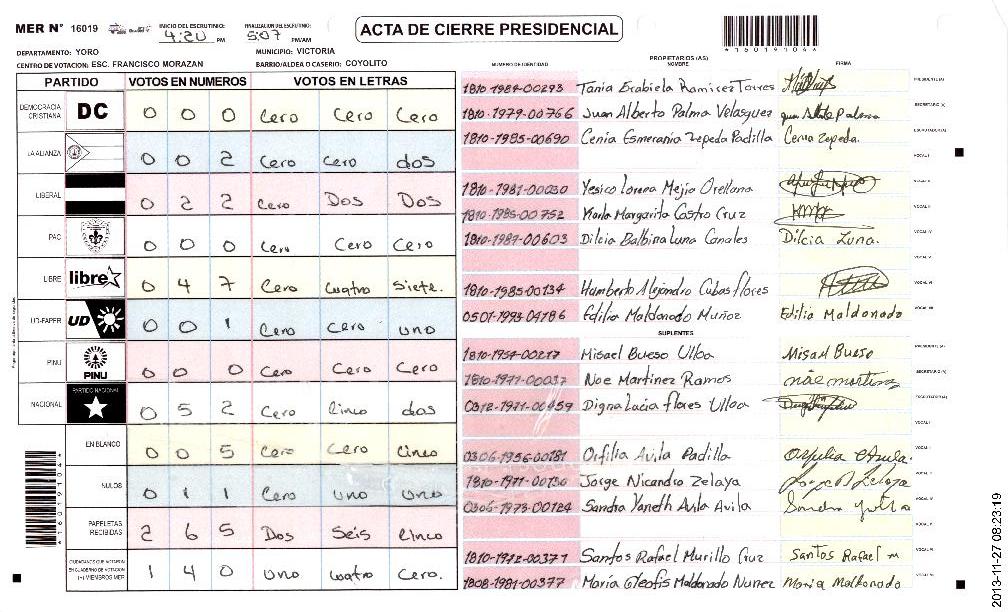 MER N° 16019 INICIO DEL ESCRUTINIO: 4:20 PM FINALIZACION DEL ESCRUTINIO: 5:07 PM/AM
ACTA DE CIERRE PRESIDENCIAL
160191044
DEPARTAMENTO: YORO MUNICIPIO: VICTORIA
CENTRO DE VOTACION: ESC. FRANCISCO MORAZAN BARRIO/ALDEA O CASERIO: COYOLITO
PARTIDO VOTOS EN NUMEROS VOTOS EN LETRAS
DEMOCRACIA CRISTIANA DC 0 0 0 Cero Cero Cero
LA ALIANZA 0 0 2 Cero Cero dos
LIBERAL 0 2 2 Cero Dos Dos
PAC 0 0 0 Cero Cero Cero
LIBRE libre 0 4 7 Cero cuatro siete.
UD-FAPER UD 0 0 1 Cero Cero uno
PINU PINU 0 0 0 Cero Cero Cero
NACIONAL PARTIDO NACIONAL 0 5 2 Cero cinco dos
EN BLANCO 0 0 5 Cero Cero cinco
NULOS 0 1 1 Cero uno uno
PAPELETAS RECIBIDAS 2 6 5 Dos Seis cinco
CIUDADANOS QUE VOTARON EN CUADERNO DE VOTACION (+) MIEMBROS MER 1 4 0 uno cuatro Cero.
NUMERO DE IDENTIDAD PROPIETARIOS (AS) NOMBRE FIRMA
1810-1984-00293 Tania Erabiela Ramirez Torres PRESIDENTE (A)
1810-1979-00766 Juan Alberto Palma Velasquez SECRETARIO (A)
1810-1985-00690 Cenia Esmerania Zepeda Padilla Cenia Zepeda. ESCRUTADOR (A)
VOCAL I
1810-1981-00030 Yesica Lorena Mejia Orellana VOCAL II
1810-1985-00752 Karla Margarita Castro Cruz VOCAL III
1810-1987-00603 Dilcia Balbina Luna Canales Dilcia Luna. VOCAL IV
VOCAL V
1810-1985-00134 Humberto Alejandro Cubas flores VOCAL VI
0501-1993-04786 Edilia Maldonado Muñoz Edilia Maldonado VOCAL VII
SUPLENTES
1810-1954-00217 Misael Bueso Ulloa Misael Bueso PRESIDENTE (A)
1810-1971-00037 Noe Martinez Ramos noe martinez SECRETARIO (A)
0312-1971-00459 Digna Lucia flores Ulloa ESCRUTADOR (A)
VOCAL I
0306-1956-00181 Orfilia Avila Padilla VOCAL II
1810-1971-00130 Jorge Nicandro Zelaya VOCAL III
0306-1973-00124 Sandra Yaneth Avila Avila VOCAL IV
VOCAL V
1810-1972-00371 Santos Rafael Murillo Cruz Santos Rafael m VOCAL VI
1808-1981-00377 Maria Cleofis Maldonado Nunez Maria Maldonado VOCAL VII
2013-11-27 08:23:19